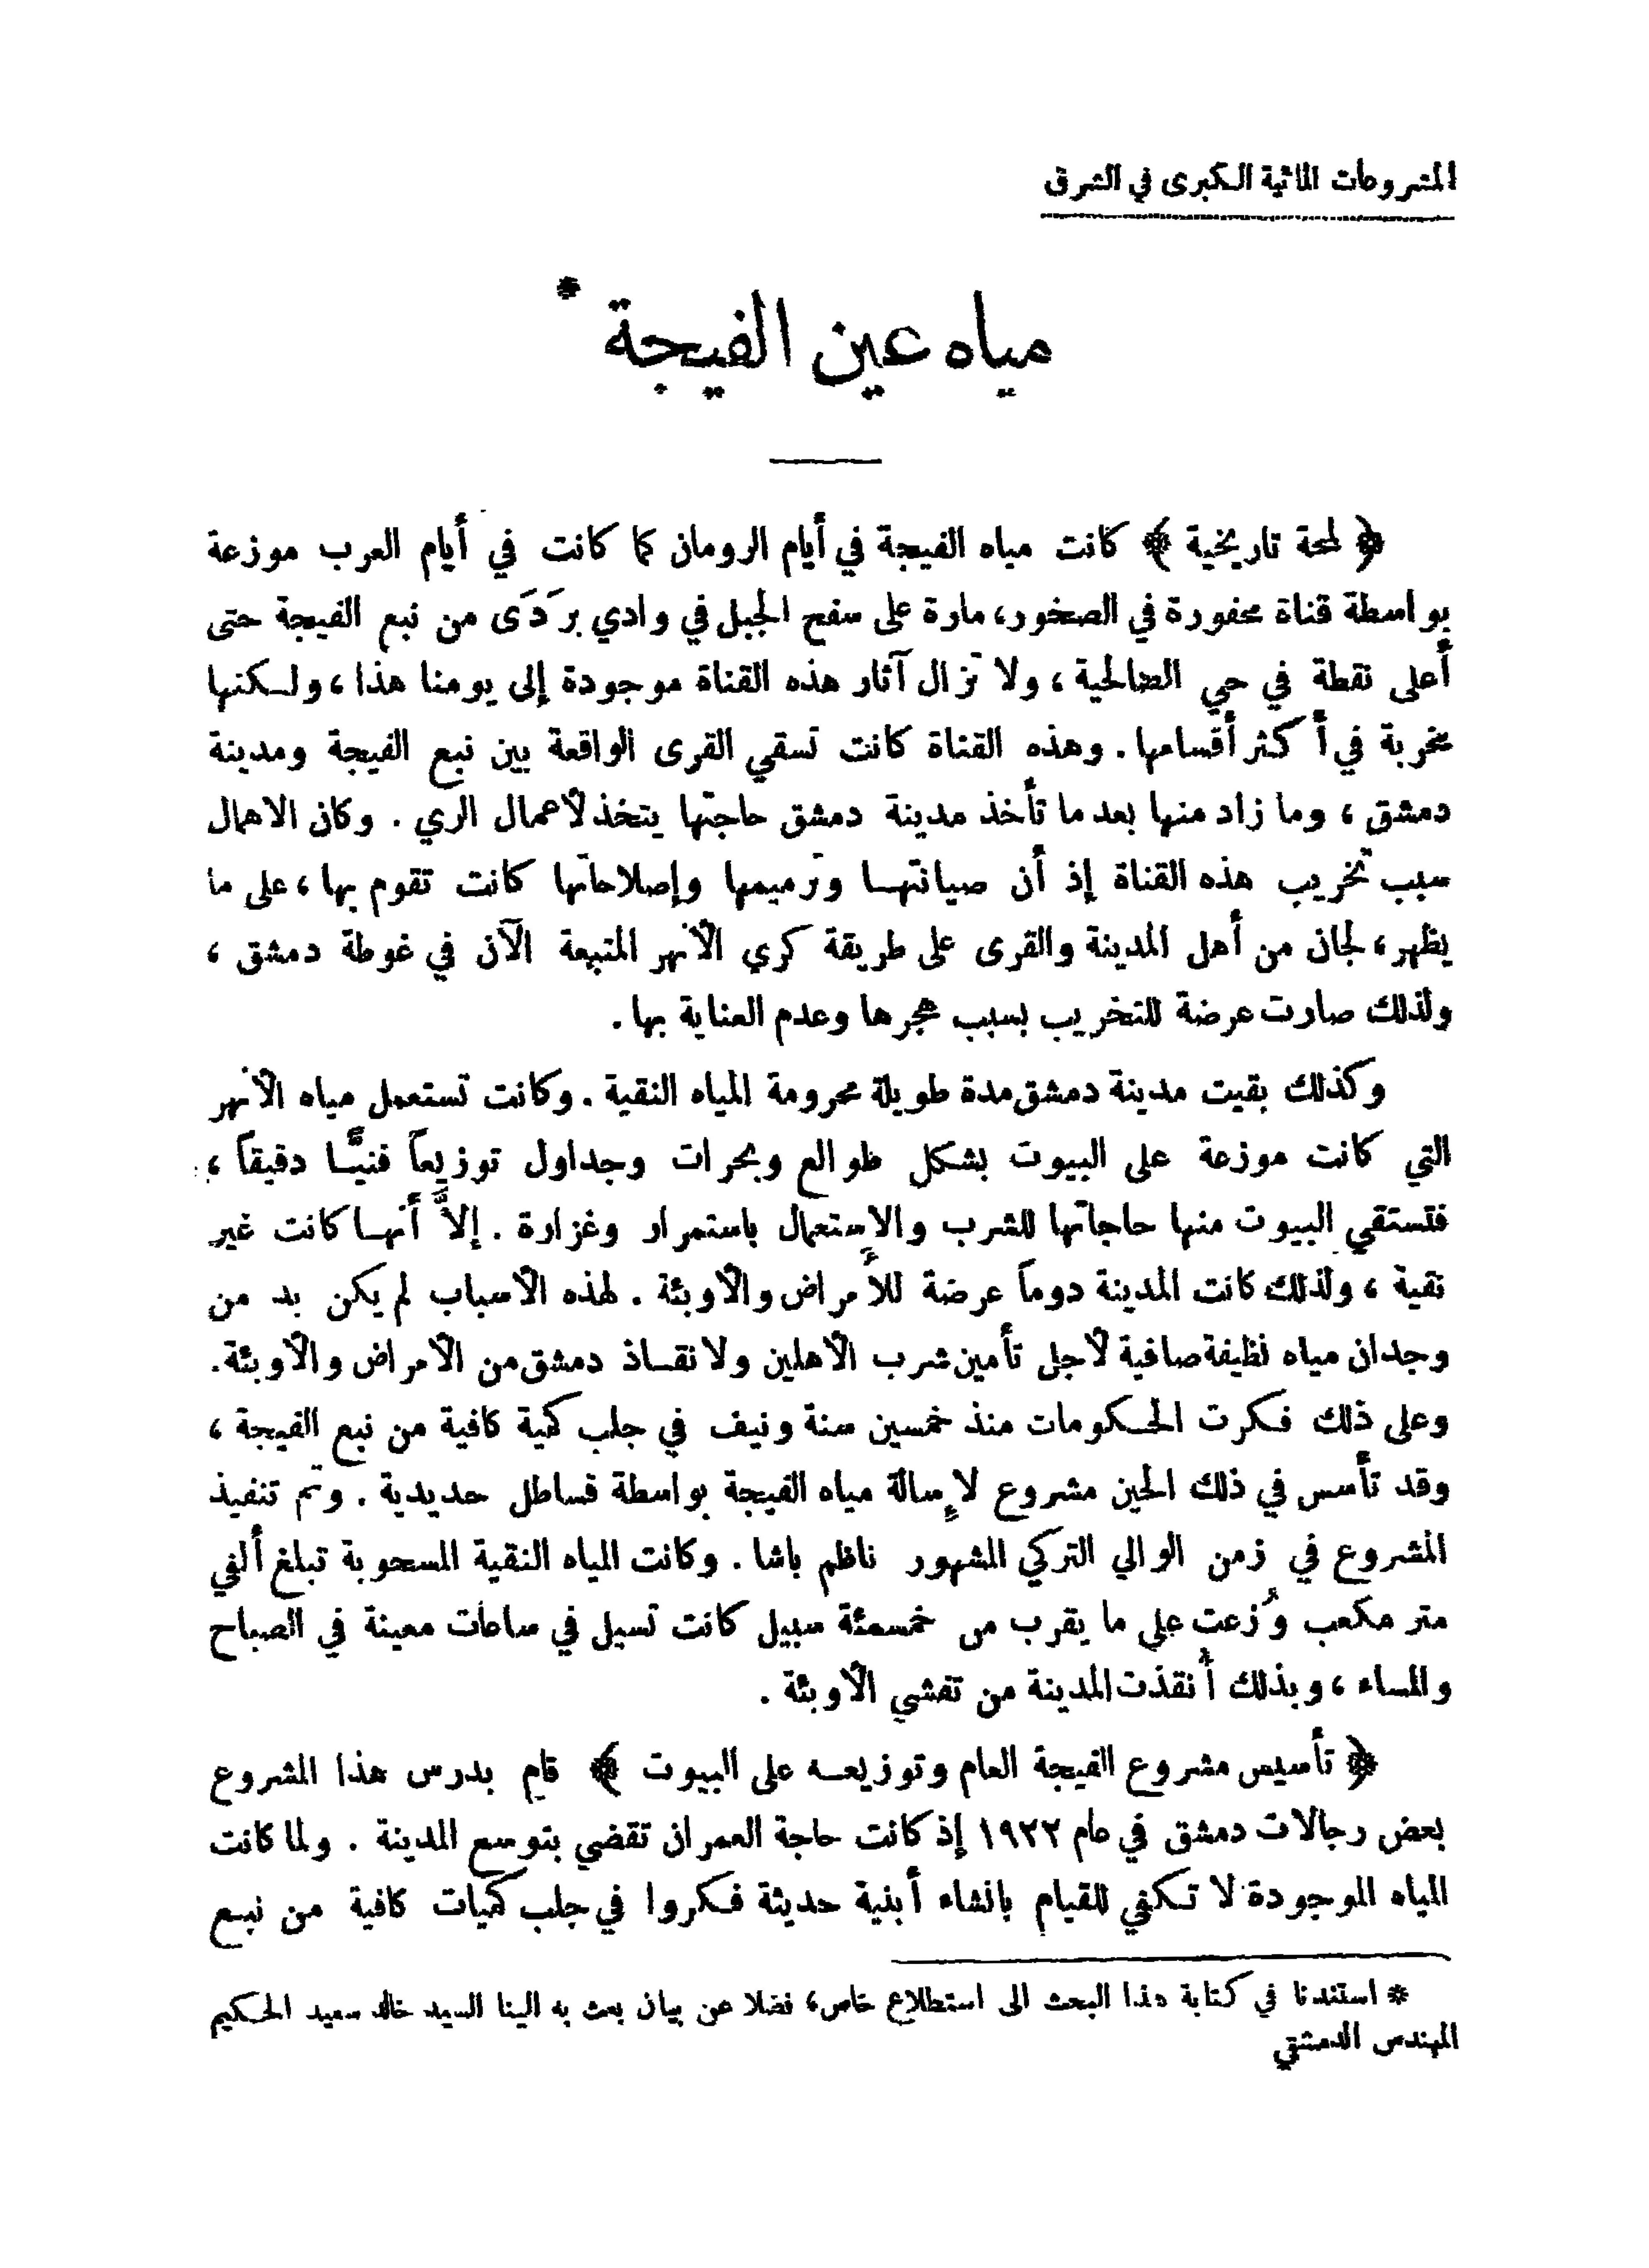 المشروعات المائية الكبرى في الشرق
مياه عين الفيجة *
﴿ لمحة تاريخية ﴾ كانت مياه الفيجة في أيام الرومان كما كانت في أيام العرب موزعة
بواسطة قناة محفورة في الصخور، مارة على سفح الجبل في وادي بَرَدَى من نبع الفيجة حتى
أعلى نقطة في حي الصالحية ، ولا تزال آثار هذه القناة موجودة إلى يومنا هذا ، ولكنها
مخربة في أكثر أقسامها . وهذه القناة كانت تسقي القرى الواقعة بين نبع الفيجة ومدينة
دمشق ، وما زاد منها بعد ما تأخذ مدينة دمشق حاجتها يتخذ لأعمال الري . وكان الاهمال
سبب تخريب هذه القناة إذ أن صيانتها وترميمها وإصلاحاتها كانت تقوم بها ، على ما
يظهر ، لجان من أهل المدينة والقرى على طريقة كري الأنهر المتبعة الآن في غوطة دمشق ،
ولذلك صارت عرضة للتخريب بسبب هجرها وعدم العناية بها .
وكذلك بقيت مدينة دمشق مدة طويلة محرومة المياه النقية . وكانت تستعمل مياه الأنهر
التي كانت موزعة على البيوت بشكل طوالع وبحرات وجداول توزيعاً فنيًّا دقيقاً ،
فتستقي البيوت منها حاجاتها للشرب والاستعمال باستمرار وغزارة . إلاَّ أنها كانت غير
نقية ، ولذلك كانت المدينة دوماً عرضة للأمراض والأوبئة . لهذه الأسباب لم يكن بد من
وجدان مياه نظيفة صافية لأجل تأمين شرب الأهلين ولانقاذ دمشق من الأمراض والأوبئة.
وعلى ذلك فكرت الحكومات منذ خمسين سنة ونيف في جلب كمية كافية من نبع الفيجة ،
وقد تأسس في ذلك الحين مشروع لإسالة مياه الفيجة بواسطة قساطل حديدية . وتم تنفيذ
المشروع في زمن الوالي التركي المشهور ناظم باشا . وكانت المياه النقية المسحوبة تبلغ ألفي
متر مكعب وُزعت على ما يقرب من خمسمئة سبيل كانت تسيل في ساعات معينة في الصباح
والمساء ، وبذلك أُنقذت المدينة من تفشي الأوبئة .
﴿ تأسيس مشروع الفيجة العام وتوزيعه على البيوت ﴾ قام بدرس هذا المشروع
بعض رجالات دمشق في عام ١٩٢٢ إذ كانت حاجة العمران تقضي بتوسع المدينة . ولما كانت
المياه الموجودة لا تكفي للقيام بانشاء أبنية حديثة فكروا في جلب كميات كافية من نبع
* استندنا في كتابة هذا البحث الى استطلاع خاص، فضلا عن بيان بعث به الينا السيد خالد سعيد الحكيم
المهندس الدمشقي